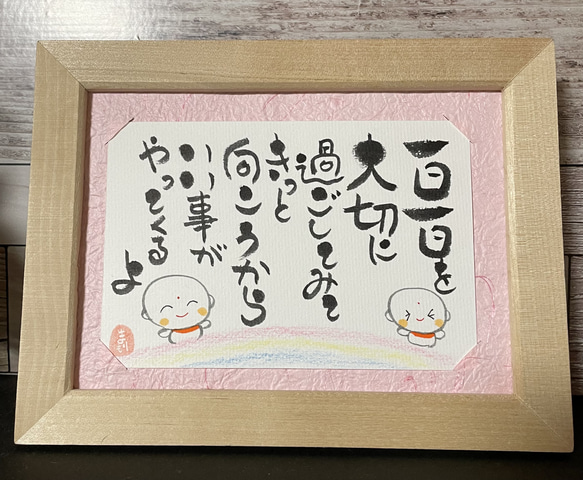 一日一日を
大切に
過ごしてみて
きっと
向こうから
いい事が
やってくる
よ